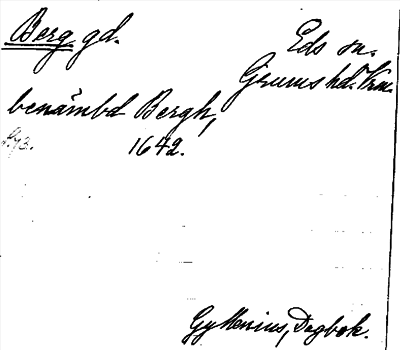 Berg gd.
Eds sn.
Grums hd. Vrm.
benämbd Bergh,
1642.
Gyllenius, Dagbok.